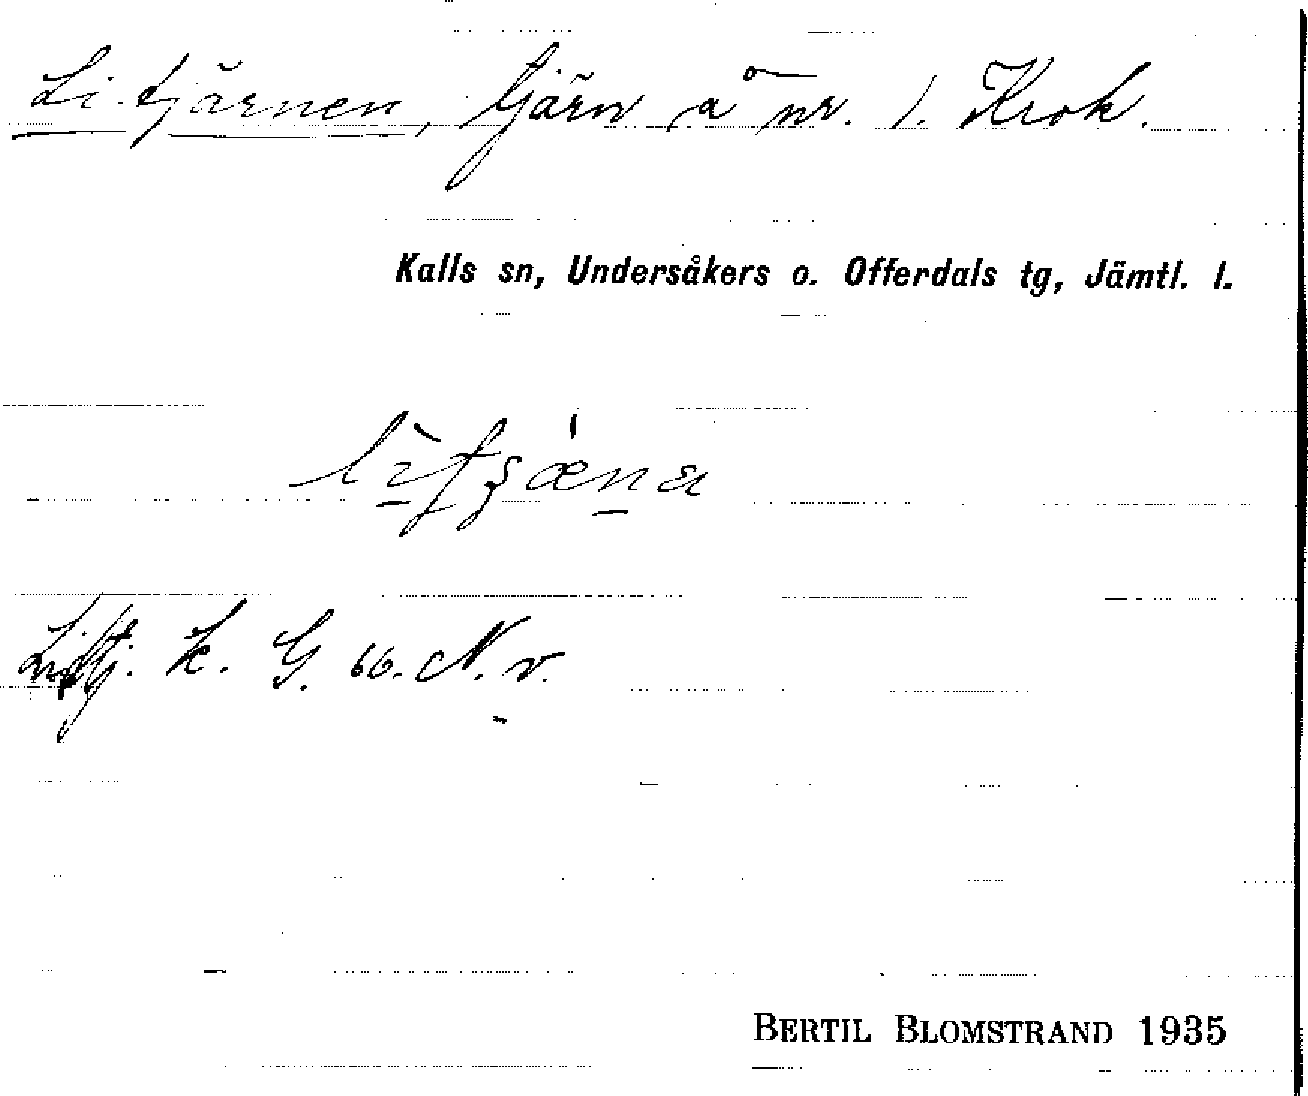 Li-tjärnen, tjärn å nr. 1. Krok.
Kalls sn, Undersåkers o. Offerdals tg, Jämtl. l.
k. G. 66. N. v.
BERTIL BLOMSTRAND 1935